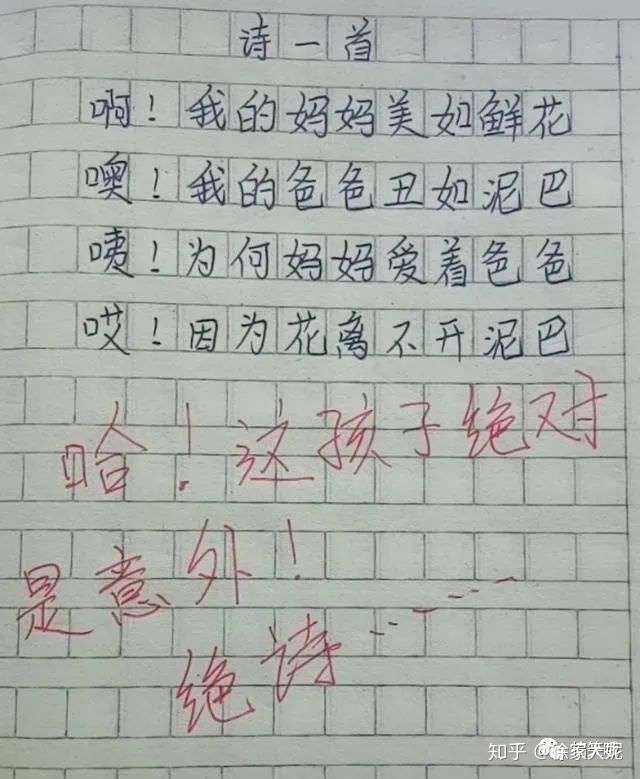 诗一首
啊！我的妈妈美如鲜花
噢！我的爸爸丑如泥巴
咦！为何妈妈爱着爸爸
哎！因为花离不开泥巴
哈！这孩子绝对
是意外！
绝诗……
知乎